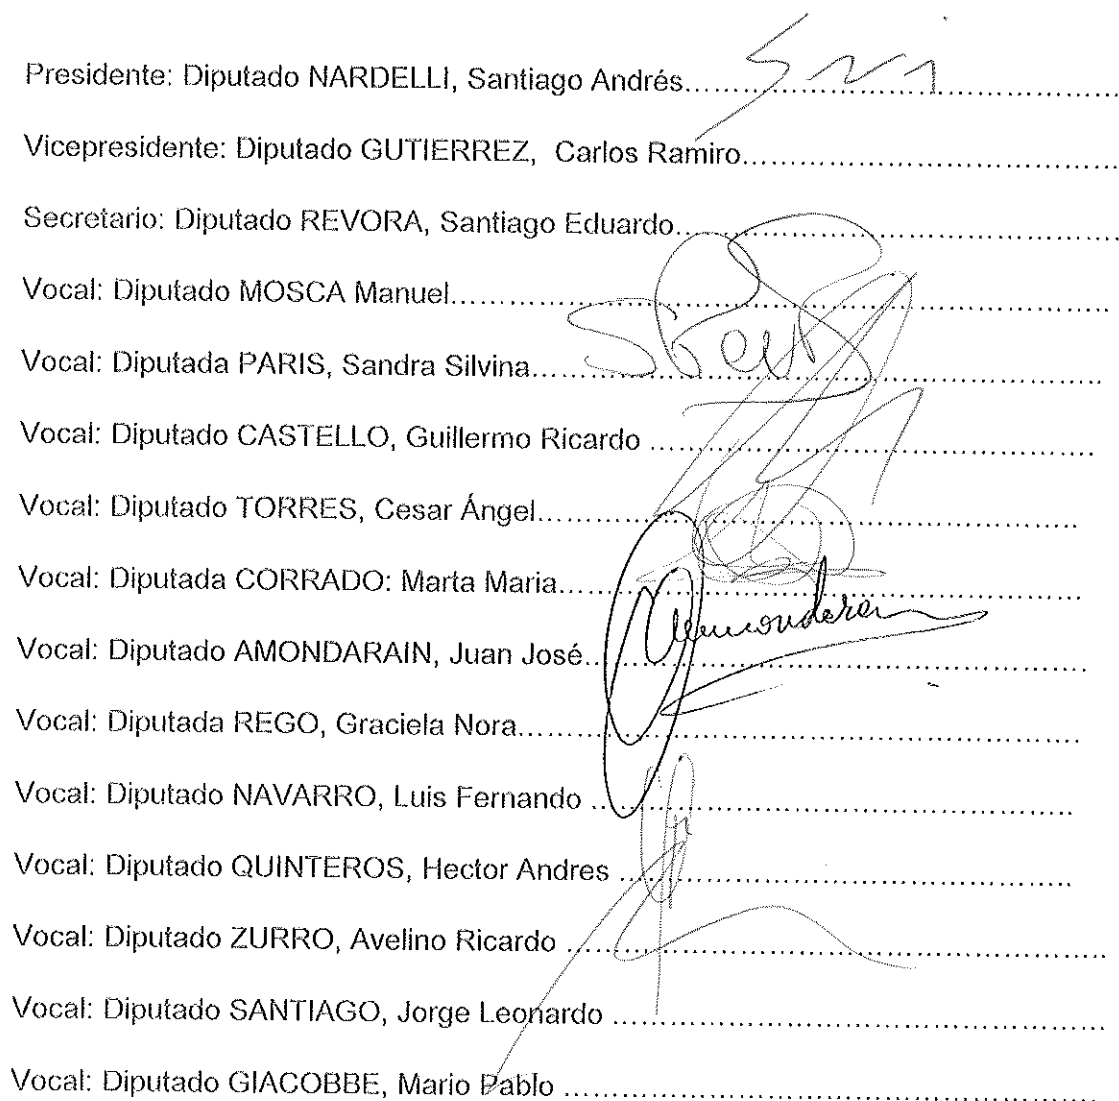 Presidente: Diputado NARDELLI, Santiago Andrés..........................................
Vicepresidente: Diputado GUTIERREZ, Carlos Ramiro..........................................
Secretario: Diputado REVORA, Santiago Eduardo..........................................
Vocal: Diputado MOSCA Manuel..........................................
Vocal: Diputada PARIS, Sandra Silvina..........................................
Vocal: Diputado CASTELLO, Guillermo Ricardo ..........................................
Vocal: Diputado TORRES, Cesar Ángel..........................................
Vocal: Diputada CORRADO: Marta Maria..........................................
Vocal: Diputado AMONDARAIN, Juan José..........................................
Vocal: Diputada REGO, Graciela Nora..........................................
Vocal: Diputado NAVARRO, Luis Fernando ..........................................
Vocal: Diputado QUINTEROS, Hector Andres ..........................................
Vocal: Diputado ZURRO, Avelino Ricardo ..........................................
Vocal: Diputado SANTIAGO, Jorge Leonardo ..........................................
Vocal: Diputado GIACOBBE, Mario Pablo ..........................................